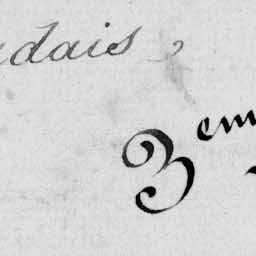 dais,
3em